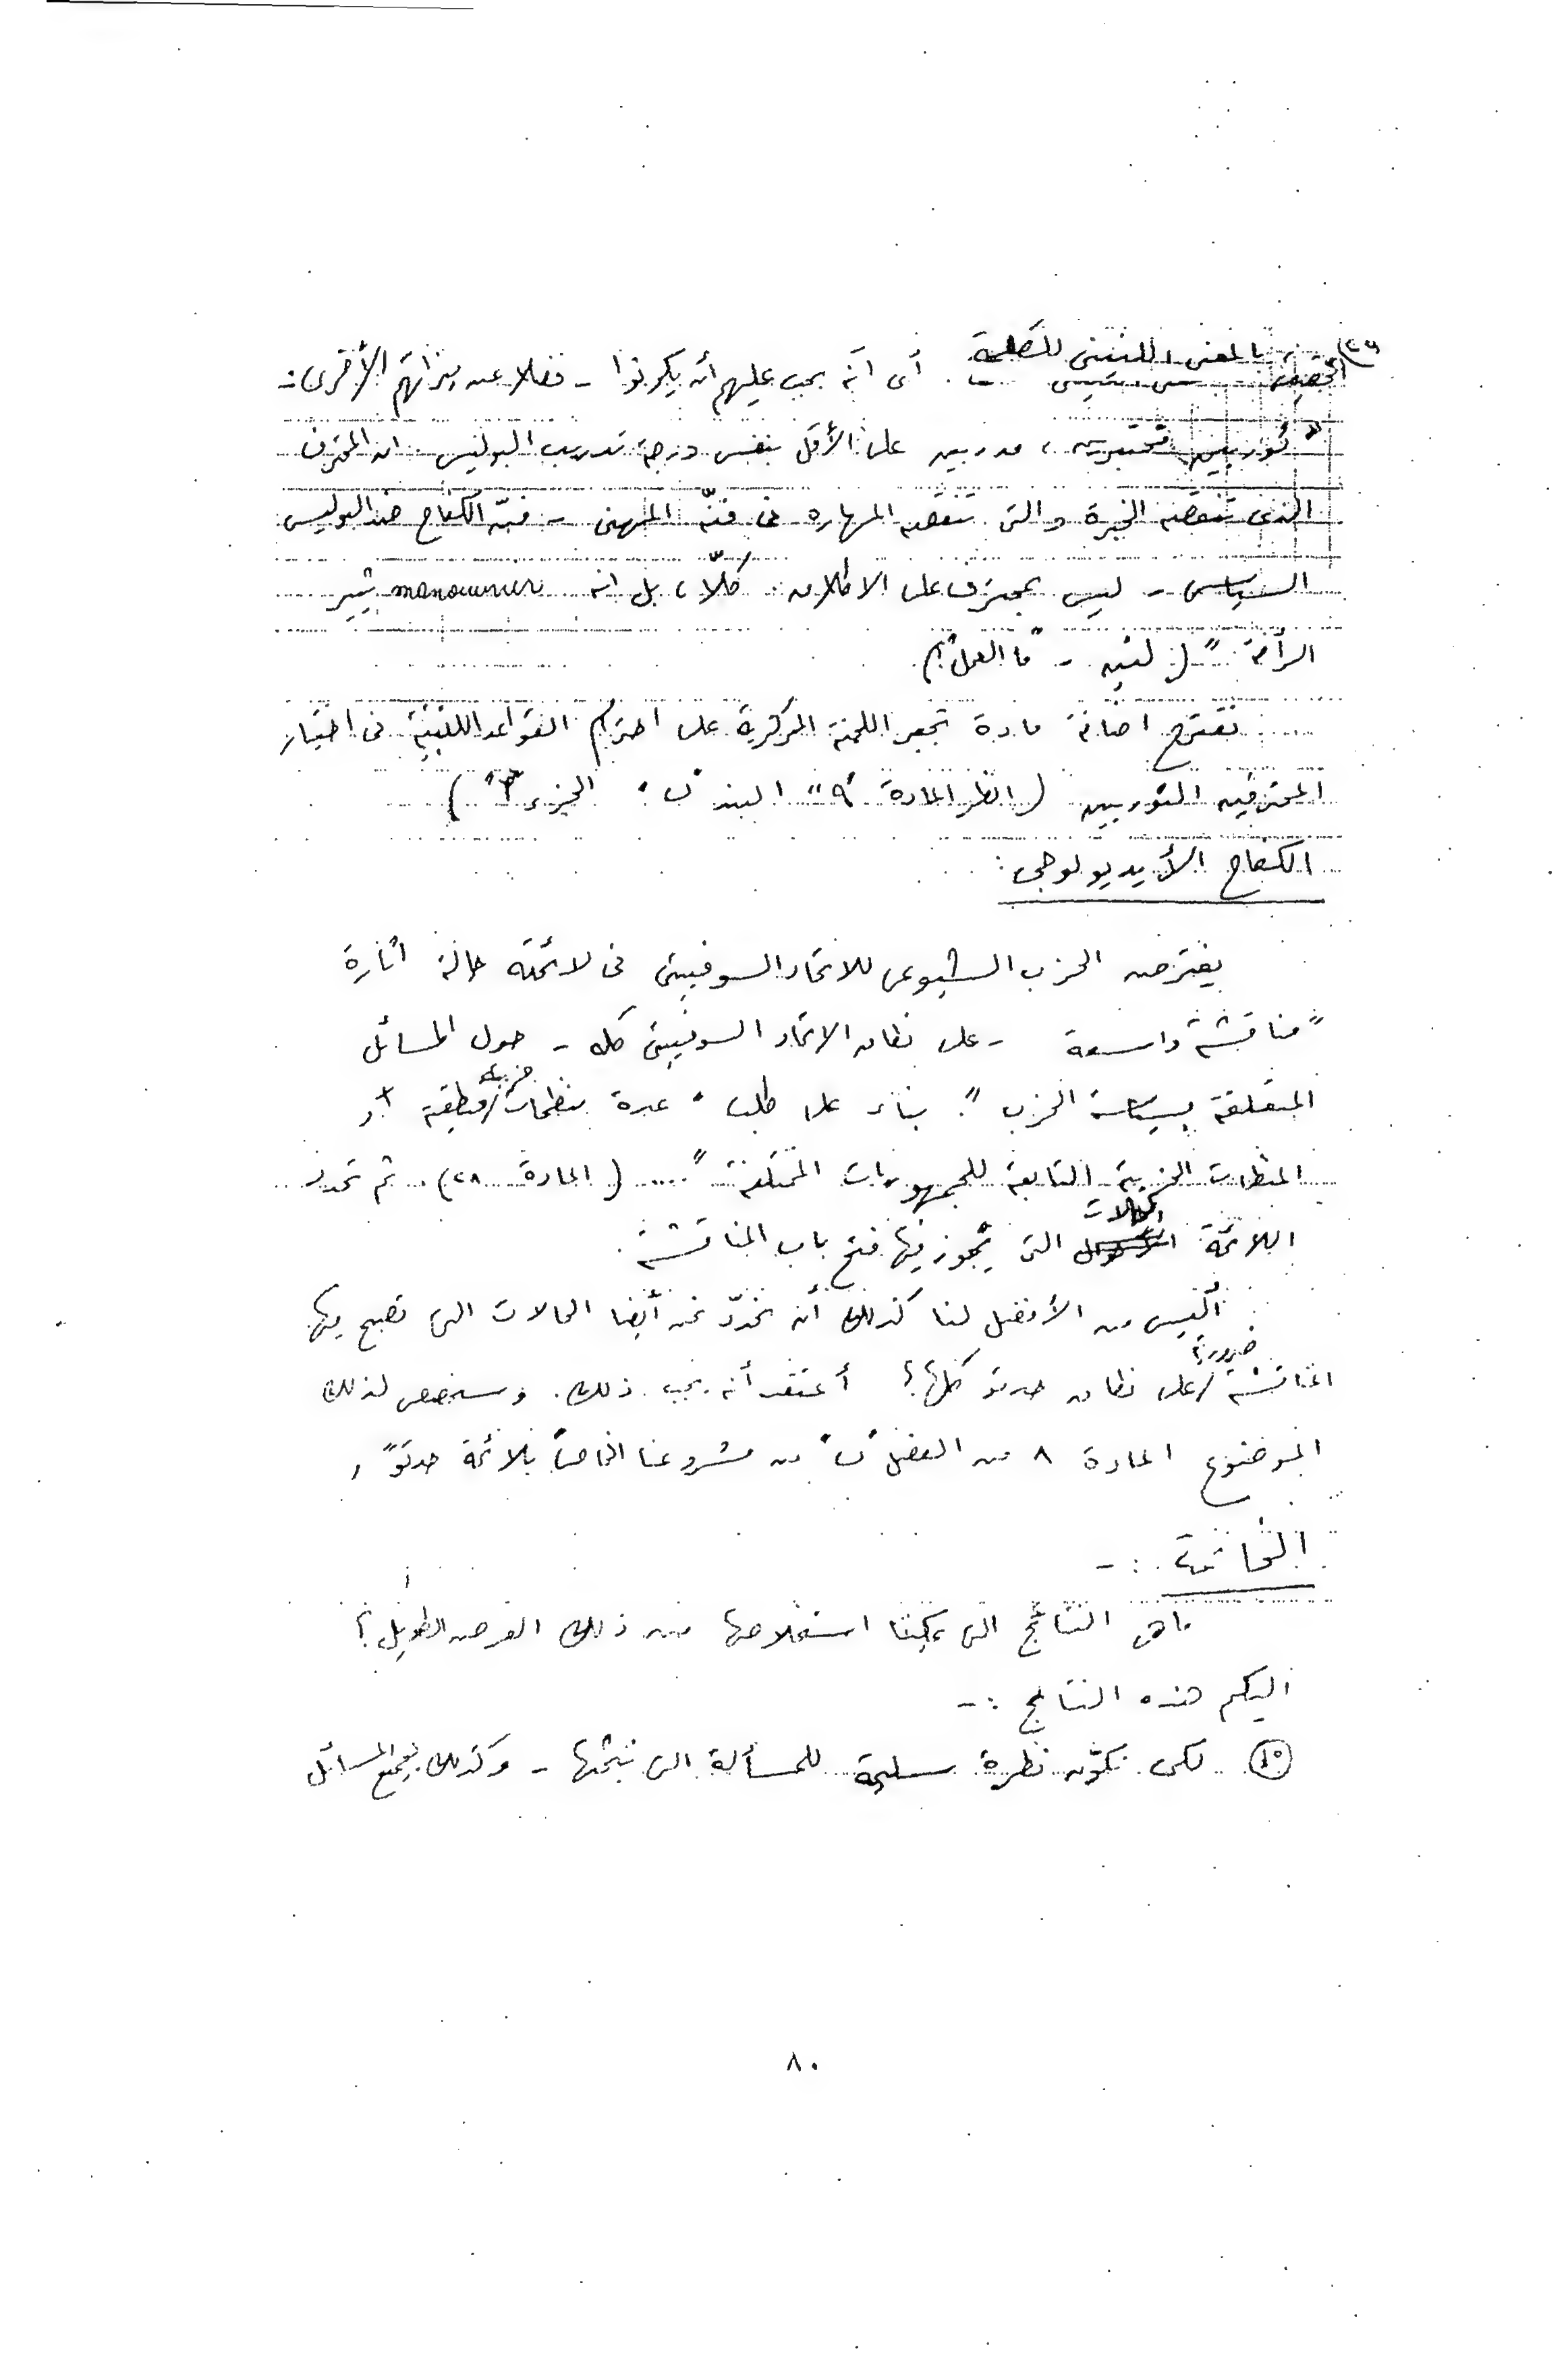 بالمعنى اللينينى للكلمة . أى أنه يجب عليهم أن يكونوا - فضلا عن ميزاتهم الأخرى :
" ثوريين محترفين ، مدربين على الأقل بنفس درجة تدريب البوليس . ان المحترف
الذى تنقصه الخبرة والتى تنقصه المهارة فى فنّه المهنى - فنّ الكفاح ضد البوليس
السياسى - ليس بمحترف على الاطلاق . كلّا ، بل انه manoeuvrier يثير
الرأفة " ( لينين - " ما العمل ؟" )
نقترح اضافة مادة تجبر اللجنة المركزية على احترام القواعد اللينينية فى اختيار
المحترفين الثوريين ( انظر المادة " ٩ " البند " ب " الجزء " ٣ " )
الكفاح الأيديولوجى :
يفترض الحزب الشيوعى للاتحاد السوفييتى فى لائحته حالة اثارة
" مناقشة واسعة - على نطاق الاتحاد السوفييتى كله - حول المسائل
المتعلقة بسياسة الحزب " . بناء على طلب " عدة منظمات حزبية منطقية أو
المنظمات الحزبية التابعة للجمهوريات المختلفة " .... ( المادة ٢٨ ) . ثم تحدد
اللائحة الحالات التى يجوز فيها فتح باب المناقشة .
أليس من الأفضل لنا كذلك أن نحدّد نحن أيضا الحالات التى تصبح فيها
المناقشة ضرورية على نطاق حدتو كلها ؟ أعتقد أنه يجب ذلك . وسنخصص لذلك
الموضوع المادة ٨ من الفصل " ب " من مشروعنا الخاص " بلائحة حدتو " .
الخاتمة : -
ما هى النتائج التى يمكننا استخلاصها من ذلك العرض الطويل ؟
اليكم هذه النتائج : -
١° لكى نكوّن نظرة سليمة للمسألة التى نبحثها - وكذلك لجميع المسائل
٨٠